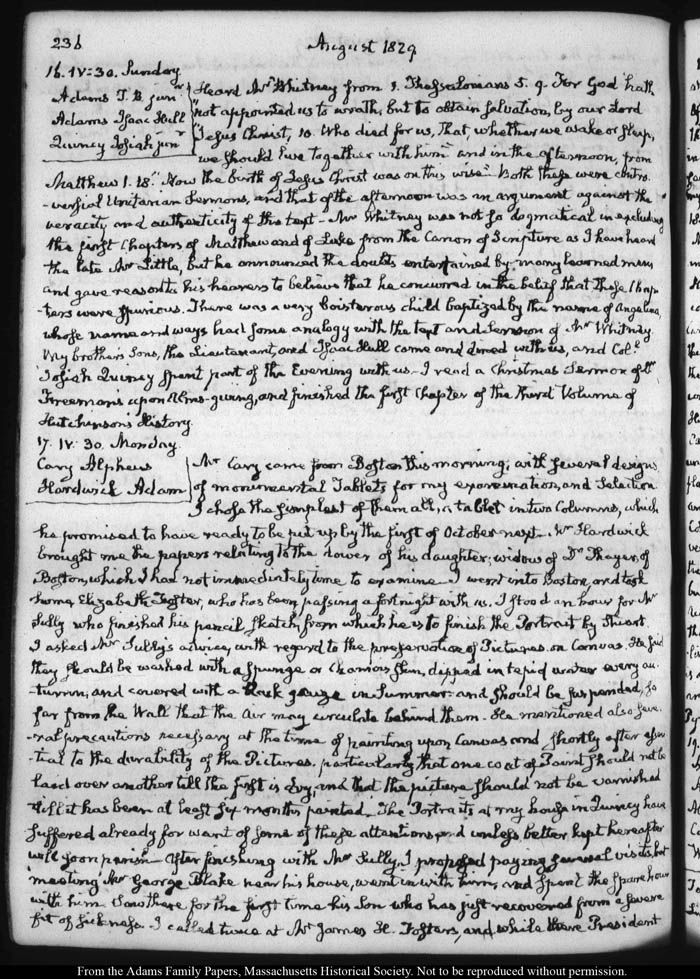 236 August 1829
16. IV:30. Sunday.
Adams T. B. junr Heard Mr Whitney from 1. Thessalonians 5. 9. For God hath
Adams Isaac Hull not appointed us to wrath, but to obtain salvation, by our Lord
Quincy Josiah junr Jesus Christ, 10. Who died for us, that, whether we wake or sleep,
we should live together with him and in the afternoon, from
Matthew 1. 18. "Now the birth of Jesus Christ was on this wise" Both these were contro-
-versial Unitarian Sermons, and that of the afternoon was an argument against the
veracity and authenticity of the text - Mr Whitney was not so dogmatical in excluding
the first Chapters of Matthew and of Luke from the Canon of Scripture as I have heard
the late Mr Little, but he announced the doubts entertained by many learned men
and gave reason to his hearers to believe that he concurred in the belief that these Chap-
-ters were spurious. There was a very boisterous child baptized by the name of Angelina,
whose name and ways had some analogy with the text and Sermon of Mr Whitney.
My brothers Sons, the Lieutenant, and Isaac Hull came and dined with us, and Col.l
Josiah Quincy spent part of the Evening with us - I read a Christmas Sermon of Dr
Freemans upon Alms-giving, and finished the first Chapter of the third Volume of
Hutchinsons History.
17. IV:30. Monday.
Cary Alpheus Mr Cary came from Boston this morning, with several designs
Hardwick Adam of monumental Tablets for my examination, and Selection
I chose the simplest of them all, a tablet in two Columns, which
he promised to have ready to be put up by the first of October next. Mr Hardwick
brought me the papers relating to the dower of his daughter, widow of Dr Thayer, of
Boston, which I had not immediately time to examine - I went into Boston, and took
home Elizabeth Foster, who has been passing a fortnight with us. I stood an hour for Mr
Sully who finished his pencil sketch from which he is to finish the Portrait by Stuart.
I asked Mr Sully's advice, with regard to the preservation of Pictures on Canvas. He said
they should be washed with a spunge or Chamois skin, dipped in tepid water every au-
-tumn, and covered with a gauze in Summer: and should be suspended, so
far from the Wall that the air may circulate behind them - He mentioned also seve-
-ral precautions necessary at the time of painting upon Canvas and shortly after essen-
-tial to the durability of the Pictures. particularly that one coat of Paint should not be
laid over another till the first is dry, and that the picture should not be varnished
till it has been at least six months painted. The Portraits at my house in Quincy have
suffered already for want of some of these attentions, and unless better kept hereafter
will soon perish - After finishing with Mr Sully, I proposed paying several visits, but
meeting Mr George Blake near his house, went in with him, and spent the spare hour
with him. Saw there for the first time his Son who has just recovered from a severe
fit of sickness. I called twice at Mr James H. Fosters, and while there President
From the Adams Family Papers, Massachusetts Historical Society. Not to be reproduced without permission.